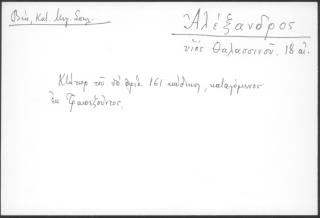 Βέη, Κατ. Μεγ. Σπηλ.
Ἀλέξανδρος
υἱὸς Θαλασσινοῦ, 18 αἰ.
Κτήτωρ τοῦ ὑπ' ἀριθ. 161 κώδικος, καταγόμενος
ἐκ Τραπεζοῦντος.